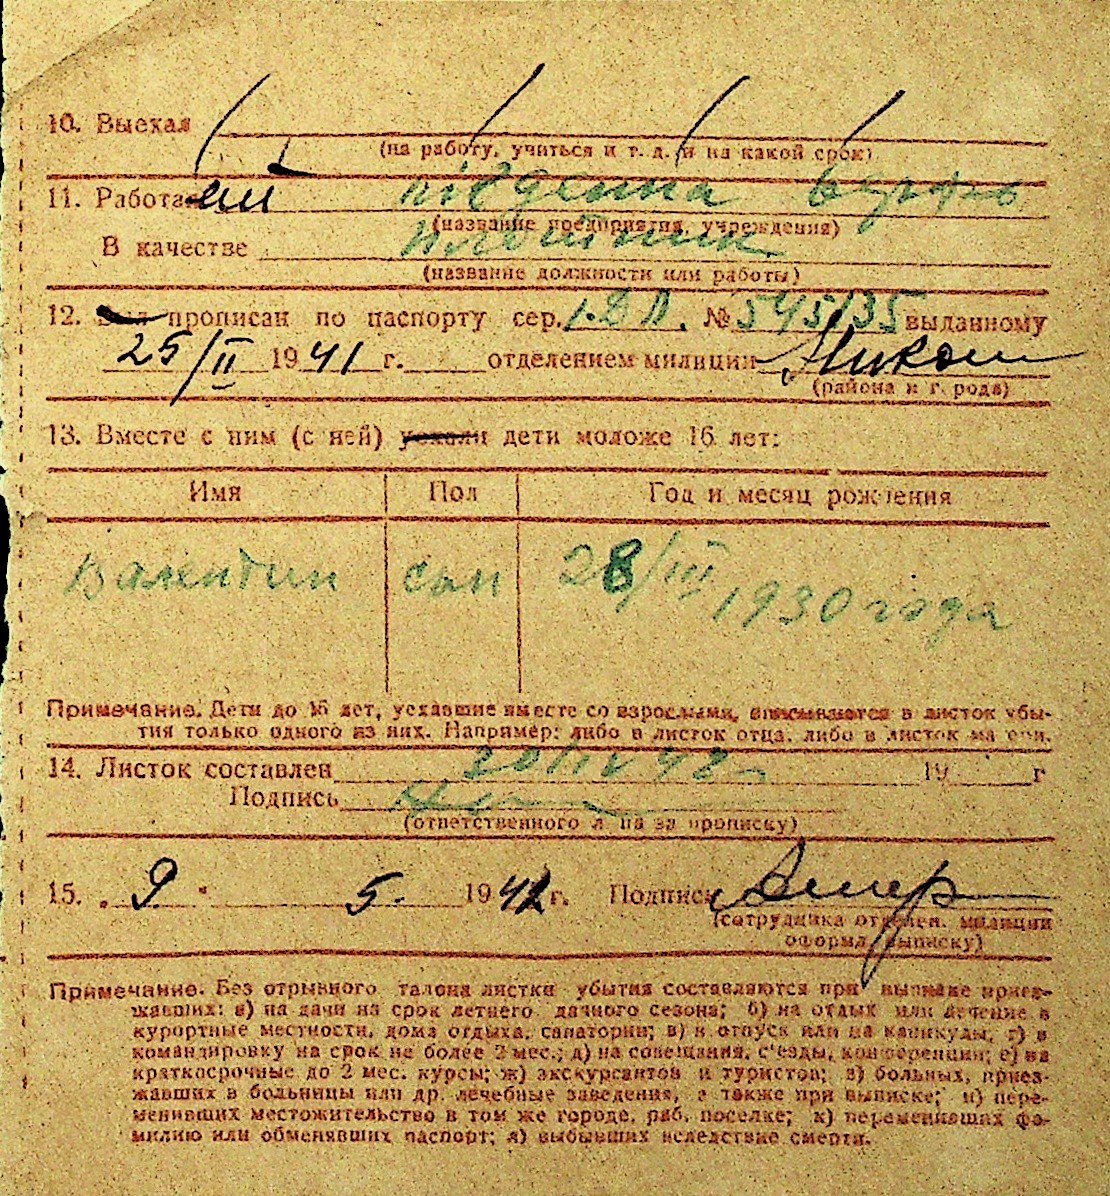 10. Выехал
(на работу, учиться и т. д. и на какой срок)
11. Работа
південна верфь
(название предприятия, учреждения)
В качестве плотник
(название должности или работы)
12. Был прописан по паспорту сер. № 545135 выданному
25/II 1941 г. отделением милиции Никол
(района и города)
13. Вместе с ним (с ней) уехали дети моложе 16 лет:
Имя Пол Год и месяц рождения
Валентин сын 28/III 1930 года
Примечание. Дети до 16 лет, уехавшие вместе со взрослыми, вписываются в листок убы-
тия только одного из них. Например: либо в листок отца, либо в листок матери.
14. Листок составлен 20/IV 42 19 г
Подпись
(ответственного лица за прописку)
15. 9 5. 1942 г. Подпись
(сотрудника отделен. милиции
оформл. выписку)
Примечание. Без отрывного талона листки убытия составляются при выписке приез-
жавших: а) на дачи на срок летнего дачного сезона; б) на отдых или лечение в
курортные местности, дома отдыха, санатории; в) в отпуск или на каникулы, г) в
командировку на срок не более 2 мес.; д) на совещания, с'езды, конференции; е) на
краткосрочные до 2 мес. курсы; ж) экскурсантов и туристов; з) больных, приез-
жавших в больницы или др. лечебные заведения, а также при выписке; и) пере-
менивших местожительство в том же городе, раб. поселке; к) переменивших фа-
милию или обменявших паспорт; л) выбывших вследствие смерти.